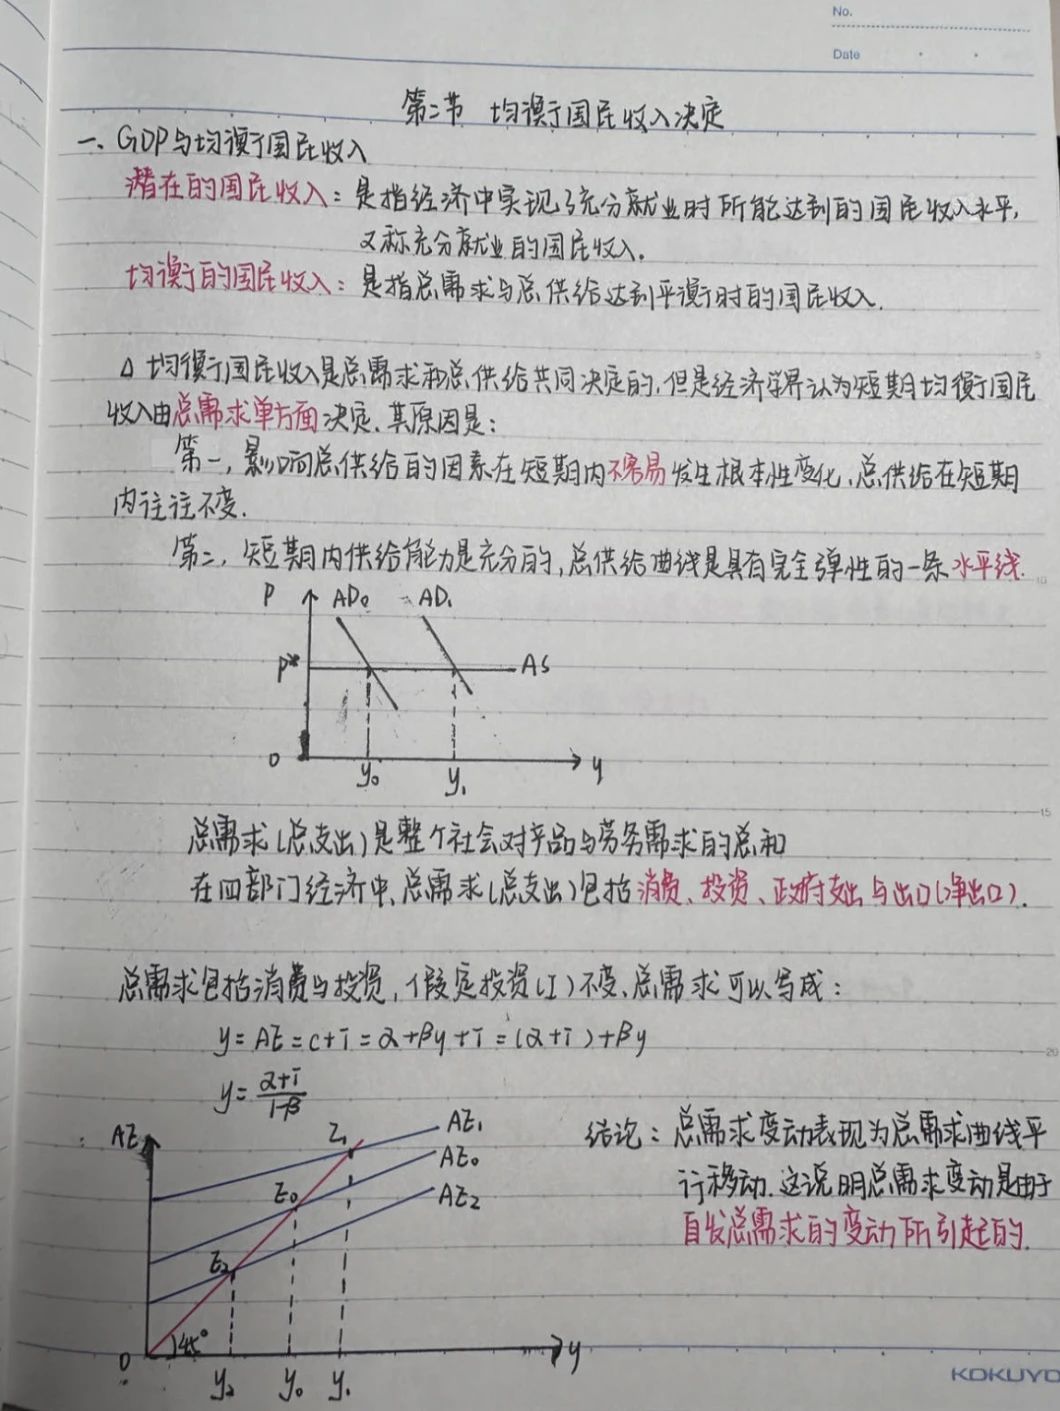 No.
Date
第二节 均衡国民收入决定
一、GDP与均衡国民收入
潜在的国民收入：是指经济中实现了充分就业时所能达到的国民收入水平,
又称充分就业的国民收入.
均衡的国民收入：是指总需求与总供给达到平衡时的国民收入.
Δ 均衡国民收入是总需求和总供给共同决定的,但是经济学界认为短期均衡国民
收入由总需求单方面决定.其原因是：
第一,影响总供给的因素在短期内不容易发生根本性变化、总供给在短期
内往往不变.
第二,短期内供给能力是充分的,总供给曲线是具有完全弹性的一条水平线.
P AD₀ AD₁
P* AS
0 y₀ y₁ y
总需求(总支出)是整个社会对产品与劳务需求的总和
在四部门经济中、总需求(总支出)包括消费、投资、政府支出与出口(净出口).
总需求包括消费与投资,假定投资(I)不变、总需求可以写成：
y=AE=c+ī=α+βy+ī=(α+ī)+βy
y=(α+ī)/(1-β)
AE E₁ AE₁
E₀ AE₀
AE₂
E₂
45°
0 y₂ y₀ y₁ y
结论：总需求变动表现为总需求曲线平
行移动.这说明总需求变动是由于
自发总需求的变动所引起的.
5
10
15
20
KOKUYO